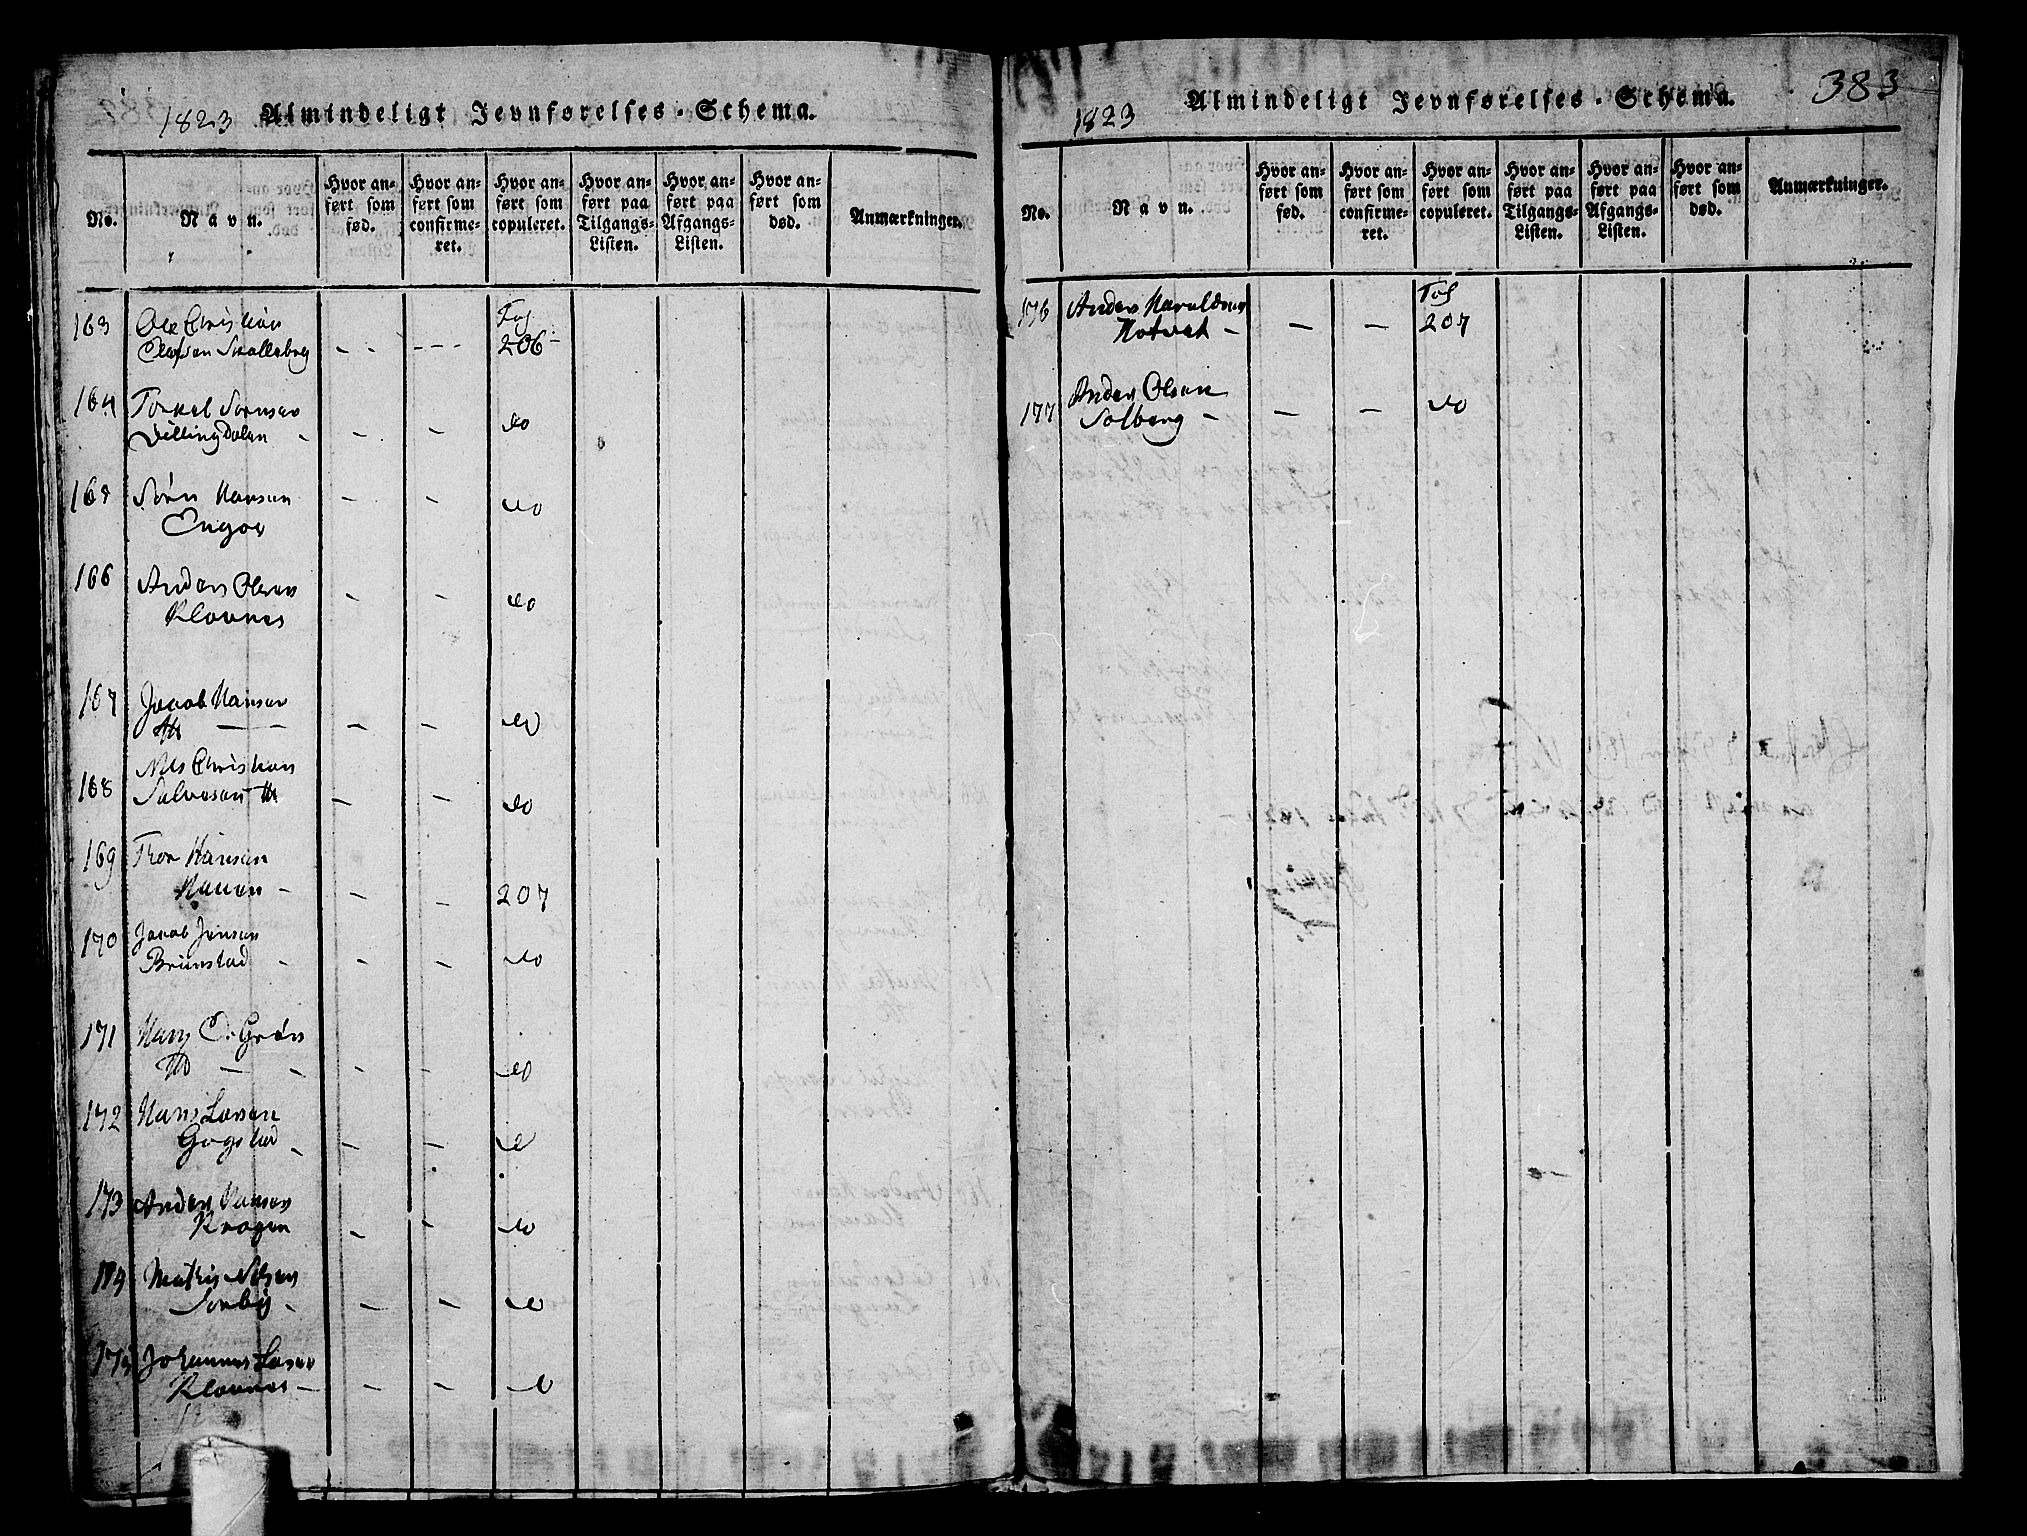 1823 Almindeligt Jevnførelses-Schema.
No. Navn. Hvor anført som fød. Hvor anført som confirmeret. Hvor anført som copuleret. Hvor anført paa Tilgangs-Listen. Hvor anført paa Afgangs-Listen. Hvor anført som død. Anmærkninger.
163 Ole Christian Fol
Olafsen - - - - - 206 -
164 Torkel
- - - do
165 Sørn Hansen - - do
Engøe
166 Anders Olsen - - do
Klavnes
167 Jacob Hansen
- - - do
168 Nils Christian
- - do
169 Thor Hansen
- - - 207
170 Jacob Jensen
Brunstad - - - do
171 Hans O. Grøn
- - - - do
172 Hans Larsen
Gogstad - - - do
173 Anders Hansen
Kragen - - do
174 Mathis Nilsen
Sørby - - - do
175 Johannes Larsen
Klavnes - - - do
1823 Almindeligt Jevnførelses-Schema. 383
No. Navn. Hvor anført som fød. Hvor anført som confirmeret. Hvor anført som copuleret. Hvor anført paa Tilgangs-Listen. Hvor anført paa Afgangs-Listen. Hvor anført som død. Anmærkninger.
176 Anders Haraldsen Fol
- - - 207
177 Anders Olsen
Solberg - - - do